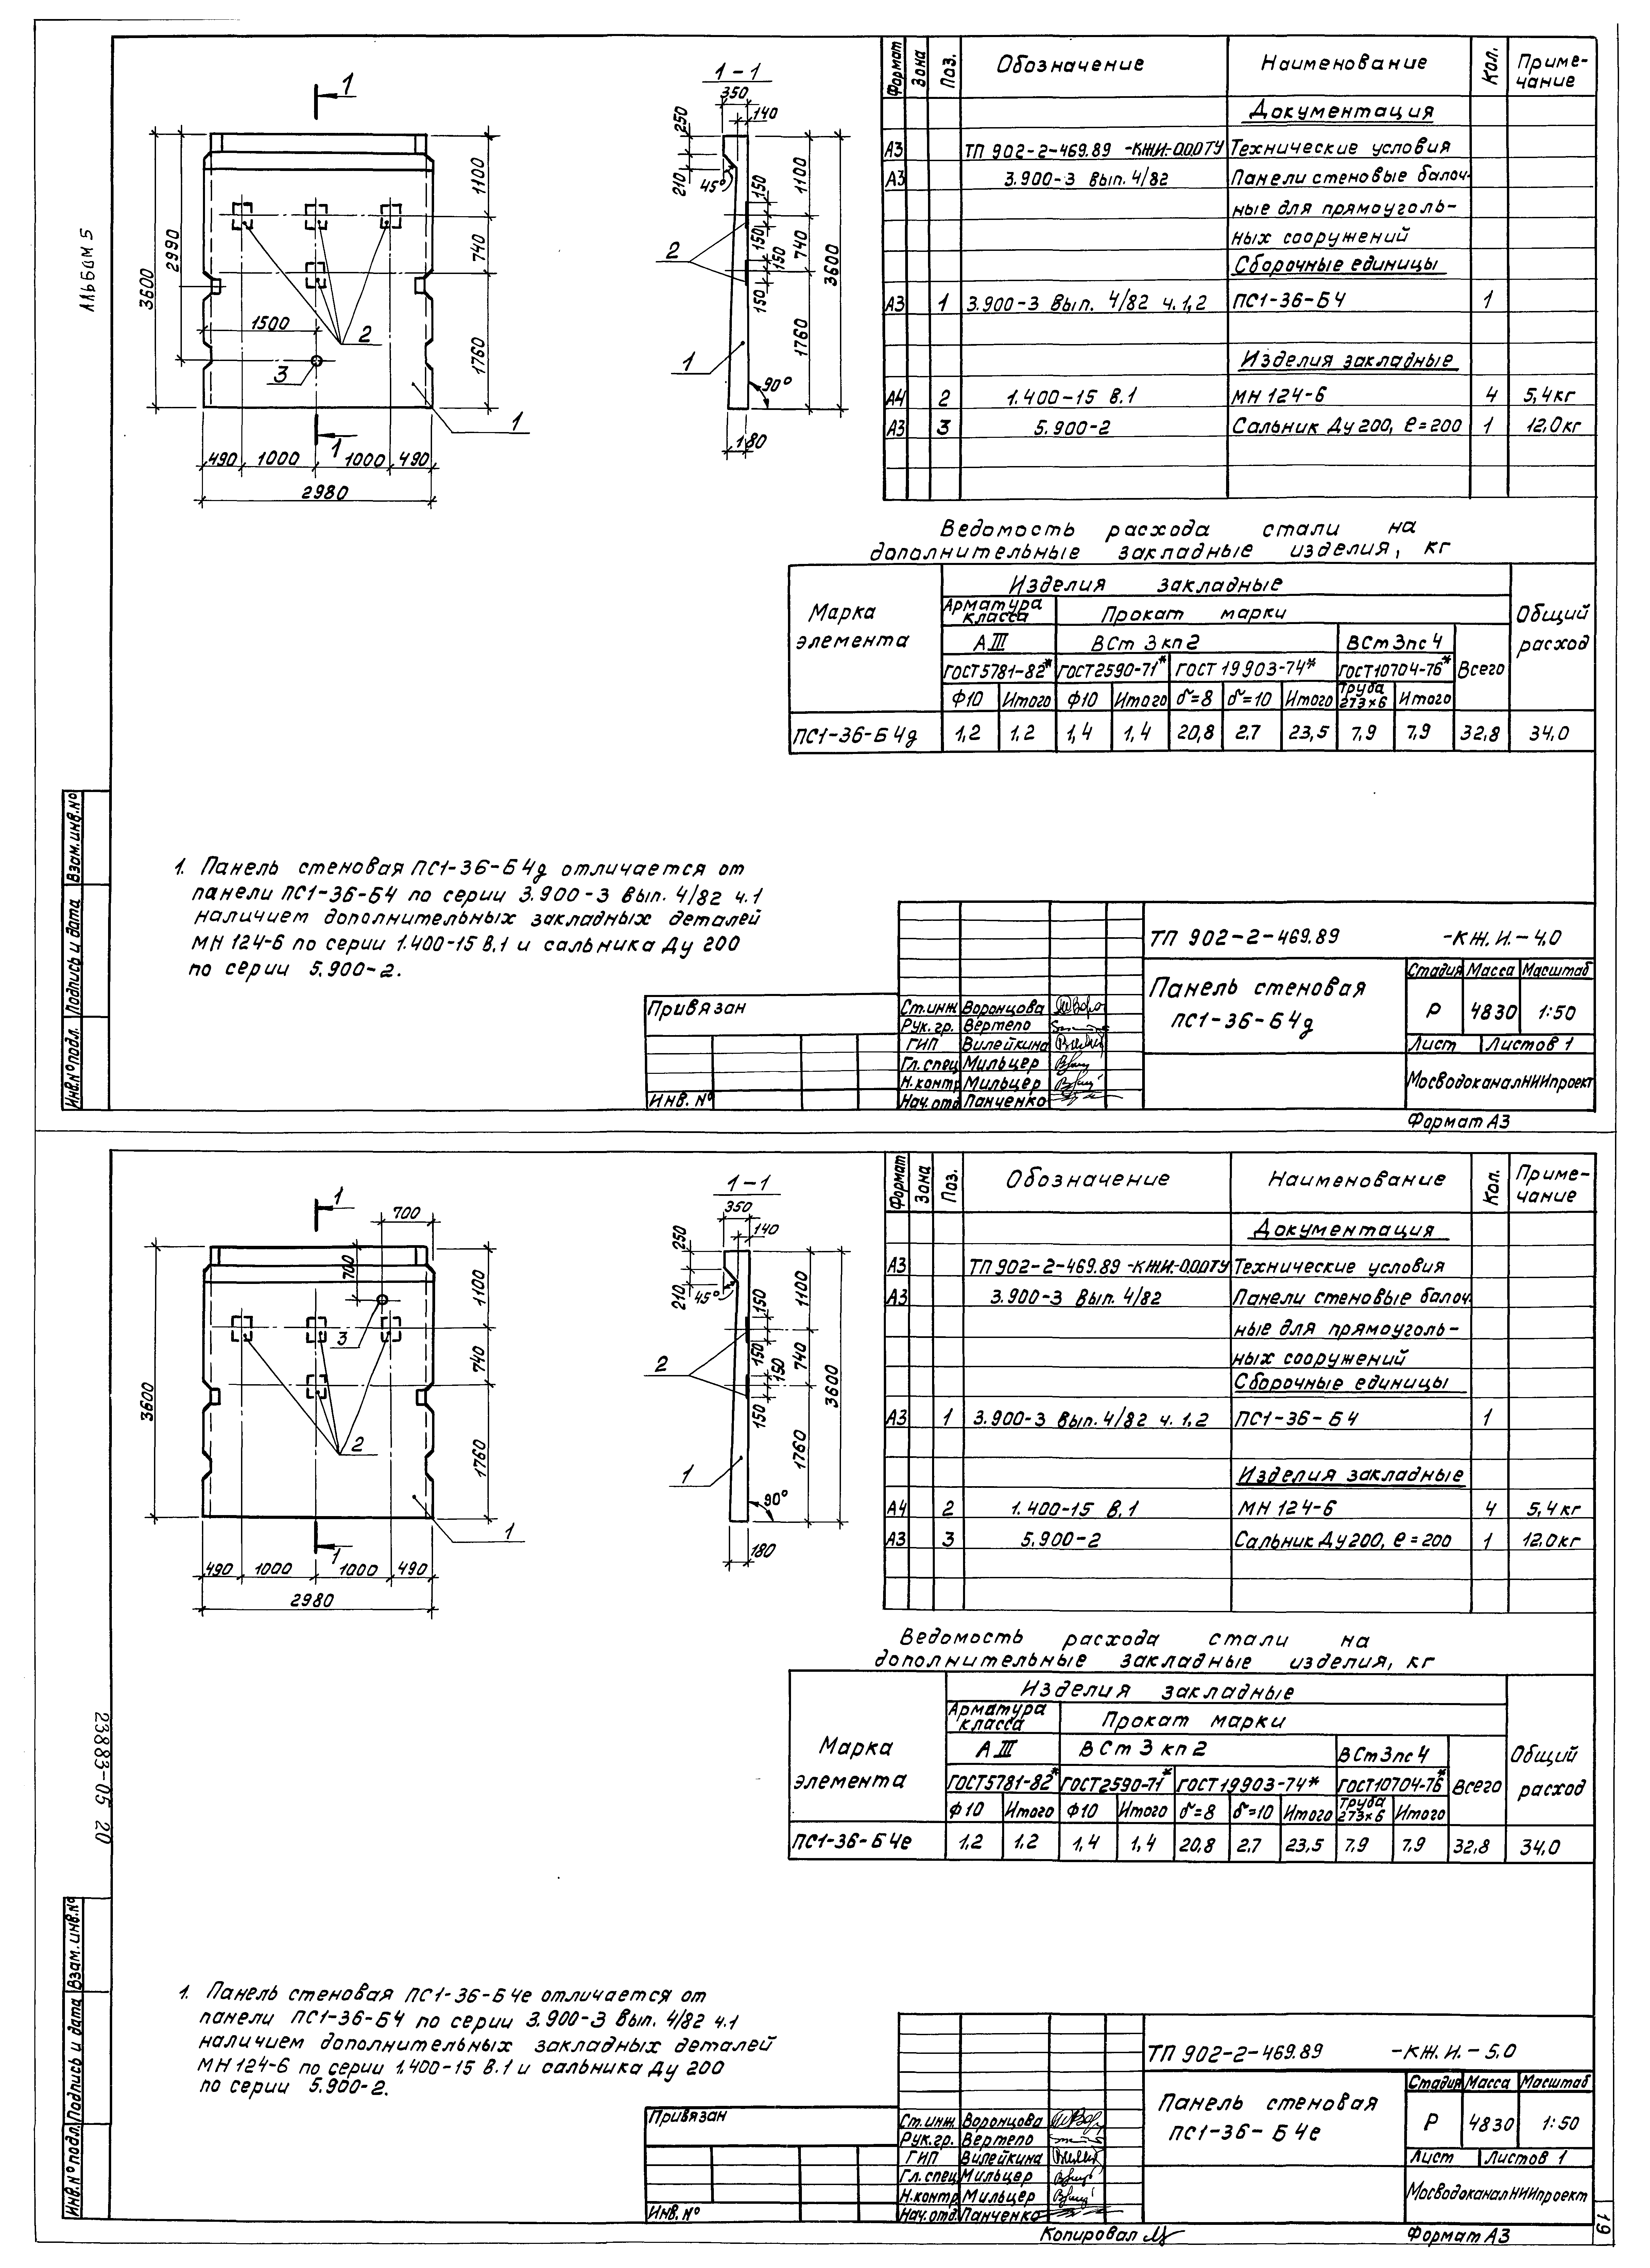 АЛЬБОМ 5
1
1-1
350
140
250
210
45°
150
150
150
150
1100
740
1760
3600
2
1
90°
180
3600
2990
1500
1100
740
1760
2
3
1
1
490 1000 1000 490
2980
Формат Зона Поз. Обозначение Наименование Кол. Приме-
чание
Документация
А3 ТП 902-2-469.89 -КЖ.И-0.0.0ТУ Технические условия
А3 3.900-3 вып. 4/82 Панели стеновые балоч-
ные для прямоуголь-
ных сооружений
Сборочные единицы
А3 1 3.900-3 вып. 4/82 ч.1,2 ПС1-36-Б4 1
Изделия закладные
А4 2 1.400-15 В.1 МН 124-6 4 5,4кг
А3 3 5.900-2 Сальник Ду 200, ℓ=200 1 12.0кг
Ведомость расхода стали на
дополнительные закладные изделия, кг
Марка элемента Изделия закладные Общий расход
Арматура класса Прокат марки
А III ВСт 3 кп 2 ВСт 3пс 4 Всего
ГОСТ5781-82* ГОСТ2590-71* ГОСТ 19903-74* ГОСТ10704-76*
Ф10 Итого Ф10 Итого δ=8 δ=10 Итого Труба 273×6 Итого
ПС1-36-Б4д 1,2 1,2 1,4 1,4 20,8 2,7 23,5 7,9 7,9 32,8 34.0
1. Панель стеновая ПС1-36-Б4д отличается от
панели ПС1-36-Б4 по серии 3.900-3 вып. 4/82 ч.1
наличием дополнительных закладных деталей
МН 124-6 по серии 1.400-15 В.1 и сальника Ду 200
по серии 5.900-2.
Инв.№подл. Подпись и дата Взам.инв.№
Привязан
Инв. №
Ст.инж Воронцова
Рук. гр. Вертепо
ГИП Вилейкина
Гл. спец Мильцер
Н.контр Мильцер
Нач. отд Панченко
ТП 902-2-469.89 -КЖ.И.-4.0
Панель стеновая
ПС1-36-Б4д
Стадия Масса Масштаб
Р 4830 1:50
Лист Листов 1
МосводоканалНИИпроект
Формат А3
1
700
700
1-1
350
140
250
210
45°
150
150
150
150
1100
740
1760
3600
2
1
90°
180
3600
1100
740
1760
3
2
1
1
490 1000 1000 490
2980
Формат Зона Поз. Обозначение Наименование Кол. Приме-
чание
Документация
А3 ТП 902-2-469.89 -КЖ.И-0.0.0ТУ Технические условия
А3 3.900-3 вып. 4/82 Панели стеновые балоч-
ные для прямоуголь-
ных сооружений
Сборочные единицы
А3 1 3.900-3 вып. 4/82 ч. 1,2 ПС1-36-Б4 1
Изделия закладные
А4 2 1.400-15 В.1 МН 124-6 4 5,4кг
А3 3 5.900-2 Сальник Ду 200, ℓ=200 1 12.0кг
Ведомость расхода стали на
дополнительные закладные изделия, кг
Марка элемента Изделия закладные Общий расход
Арматура класса Прокат марки
А III ВСт 3 кп 2 ВСт 3пс 4 Всего
ГОСТ5781-82* ГОСТ2590-71* ГОСТ 19903-74* ГОСТ10704-76*
Ф10 Итого Ф10 Итого δ=8 δ=10 Итого Труба 273×6 Итого
ПС1-36-Б4е 1,2 1,2 1,4 1,4 20,8 2,7 23,5 7,9 7,9 32,8 34.0
23883-05 20
1. Панель стеновая ПС1-36-Б4е отличается от
панели ПС1-36-Б4 по серии 3.900-3 вып. 4/82 ч.1
наличием дополнительных закладных деталей
МН 124-6 по серии 1.400-15 В.1 и сальника Ду 200
по серии 5.900-2.
Инв.№подл. Подпись и дата Взам.инв.№
Привязан
Инв. №
Ст.инж. Воронцова
Рук.гр. Вертепо
ГИП Вилейкина
Гл. спец Мильцер
Н.контр Мильцер
Нач.отд. Панченко
ТП 902-2-469.89 -КЖ.И.-5.0
Панель стеновая
ПС1-36-Б4е
Стадия Масса Масштаб
Р 4830 1:50
Лист Листов 1
МосводоканалНИИпроект
Копировал
Формат А3
19